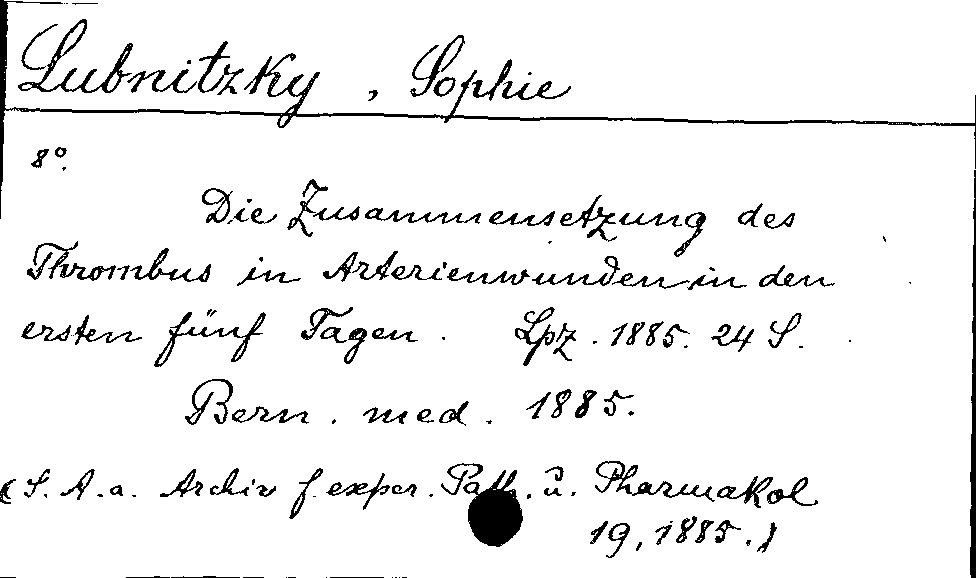 Lubnitzky, Sophie
8°.
Die Zusammensetzung des
Thrombus in Arterienwunden in den
ersten fünf Tagen. Lpz. 1885. 24 S.
Bern. med. 1885.
(S. A. a. Archiv f. exper. Path. u. Pharmakol
19, 1885.)